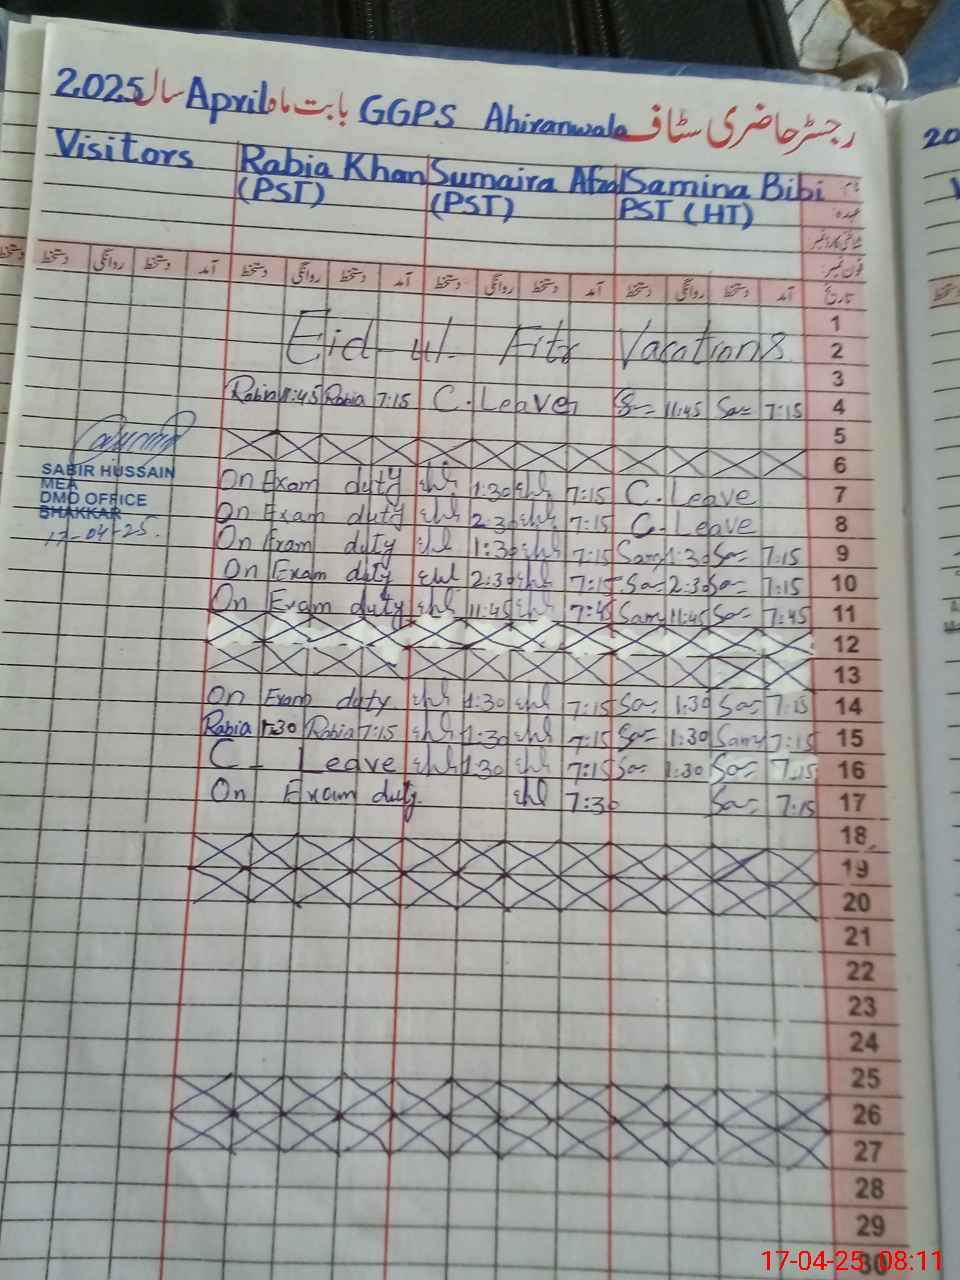 رجسٹر حاضری سٹاف GGPS Ahiranwala بابت ماہ April سال 2025
Visitors Rabia Khan Sumaira Afzal Samina Bibi نام
(PST) (PST) PST (HT) عہدہ
شناختی کارڈ نمبر
فون نمبر
دستخط روانگی دستخط آمد دستخط روانگی دستخط آمد دستخط روانگی دستخط آمد دستخط روانگی دستخط آمد تاریخ
1
Eid-ul-Fitr Vacations 2
3
Rabia 11:45 Rabia 7:15 C.Leave 11:45 7:15 4
5
6
On Exam duty 1:30 7:15 C.Leave 7
On Exam duty 2:30 7:15 C.Leave 8
On Exam duty 1:30 7:15 1:30 7:15 9
On Exam duty 2:30 7:15 2:30 7:15 10
On Exam duty 11:45 7:45 11:45 7:45 11
12
13
On Exam duty 1:30 7:15 1:30 7:15 14
Rabia 1:30 Rabia 7:15 1:30 7:15 1:30 7:15 15
C. Leave 1:30 7:15 1:30 7:15 16
On Exam duty 7:30 7:15 17
18
19
20
21
22
23
24
25
26
27
28
29
30
SABIR HUSSAIN
MEA
DMO OFFICE
BHAKKAR
17-04-25.
20
17-04-25 08:11